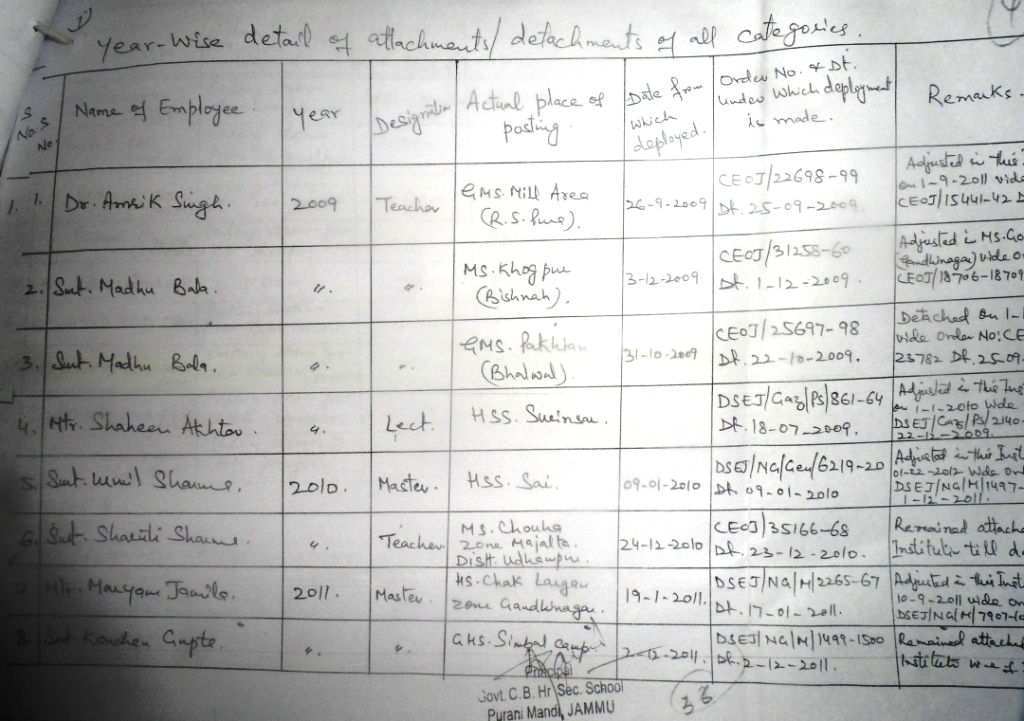 1)
Year-Wise detail of attachments/detachments of all categories.
S No. S No. Name of Employee. Year Designation Actual place of posting. Date from which deployed. Order No. & Dt. under which deployment is made. Remarks.
1. 1. Dr. Amrik Singh. 2009 Teacher GMS. Mill Area (R.S. Pura). 26-9-2009 CEOJ/22698-99 Dt. 25-09-2009. Adjusted in this on 1-9-2011 vide CEOJ/15441-42 D
2. Smt. Madhu Bala. 〃. 〃. MS. Khogpur (Bishnah). 3-12-2009 CEOJ/31258-60 Dt. 1-12-2009. Adjusted in MS. Go (Gandhinagar) vide o CEOJ/18706-18709
3. Smt. Madhu Bala. 〃. 〃. GMS. Pakhian (Bhalwal). 31-10-2009 CEOJ/25697-98 Dt. 22-10-2009. Detached on 1-1 vide order No: CE 23782 Dt. 25.09.
4. Mtr. Shaheen Akhtar. 〃. Lect. HSS. Dt. 18-07-2009. DSEJ/Gaz/Ps/861-64 Adjusted in this Inst on 1-1-2010 vide DSEJ/Gaz/Ps/2140- 22-12-2009.
5. Smt. Sharma. 2010. Master. HSS. Sai. 09-01-2010 DSEJ/NG/Gen/6219-20 Dt. 09-01-2010 Adjusted in this Inst 01-02-2012 vide ord DSEJ/NG/M/1497- 1-12-2011.
6. Smt. Sharma. 〃. Teacher MS. Chouha Zone Majalta. Distt. Udhampur. 24-12-2010 CEOJ/35166-68 Dt. 23-12-2010. Remained attach Institution till d
7. Mtr. Maryam Jamila. 2011. Master. HS. Chak Zone Gandhinagar. 19-1-2011. DSEJ/NG/M/2265-67 Dt. 17-01-2011. Adjusted in this Inst 10-9-2011 vide or DSEJ/NG/M/7907-10
8. Smt. Kanchan Gupta. 〃. 〃. GHS. Simbal Camp 2-12-2011. DSEJ/NG/M/1499-1500 Dt. 2-12-2011. Remained attach Institute w.e.f
Principal
Govt. C.B. Hr. Sec. School
Purani Mandi, JAMMU
38